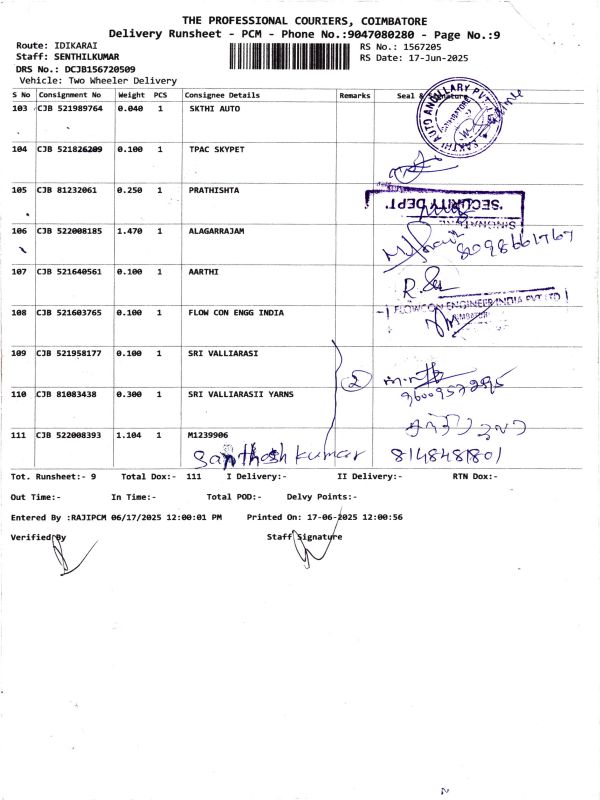 THE PROFESSIONAL COURIERS, COIMBATORE
Delivery Runsheet - PCM - Phone No.:9047080280 - Page No.:9
Route: IDIKARAI
Staff: SENTHILKUMAR
DRS No.: DCJB156720509
Vehicle: Two Wheeler Delivery
RS No.: 1567205
RS Date: 17-Jun-2025
S No Consignment No Weight PCS Consignee Details Remarks Seal & Signature
103 CJB 521989764 0.040 1 SKTHI AUTO
104 CJB 521826209 0.100 1 TPAC SKYPET
105 CJB 81232061 0.250 1 PRATHISHTA
SECURITY DEPT.
106 CJB 522008185 1.470 1 ALAGARRAJAM
8098661767
107 CJB 521640561 0.100 1 AARTHI
108 CJB 521603765 0.100 1 FLOW CON ENGG INDIA
FLOWCON ENGINEER INDIA PVT LTD
109 CJB 521958177 0.100 1 SRI VALLIARASI
2
110 CJB 81083438 0.300 1 SRI VALLIARASII YARNS
9600957295
111 CJB 522008393 1.104 1 M1239906
Santhosh kumar 8148481801
Tot. Runsheet:- 9 Total Dox:- 111 I Delivery:- II Delivery:- RTN Dox:-
Out Time:- In Time:- Total POD:- Delvy Points:-
Entered By :RAJIPCM 06/17/2025 12:00:01 PM Printed On: 17-06-2025 12:00:56
Verified By Staff Signature